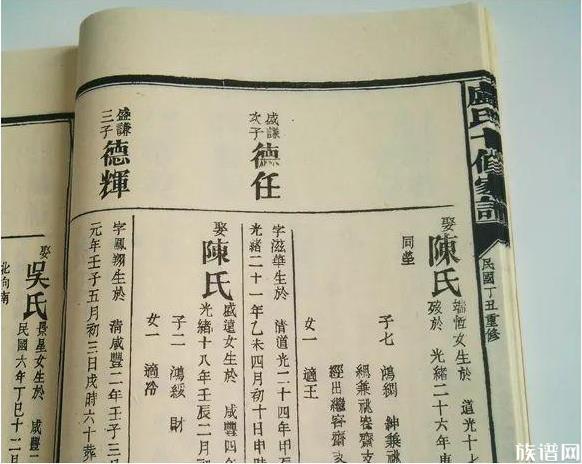 民國丁丑重修
娶
陳氏
端恆女生於 道光十七
歿於 光緒二十六年
同塋
子七 鴻綢 紳兼祧
兼祧容齋支
經出繼容齋支
女一 適王
盛謙
次子
德任
字滋華生於 清道光二十四年甲
光緒二十一年乙未四月初十日申時
娶
陳氏
盛遠女生於 咸豐四
光緒十八年壬辰二月
子二 鴻綬 財
女一 適冷
盛謙
三子
德輝
字鳳翔生於 清咸豐二年壬子三
元年壬子五月初三日戌時六十葬
娶
吳氏
長星女生於 咸豐
民國六年丁巳十二月
北向南
族谱网